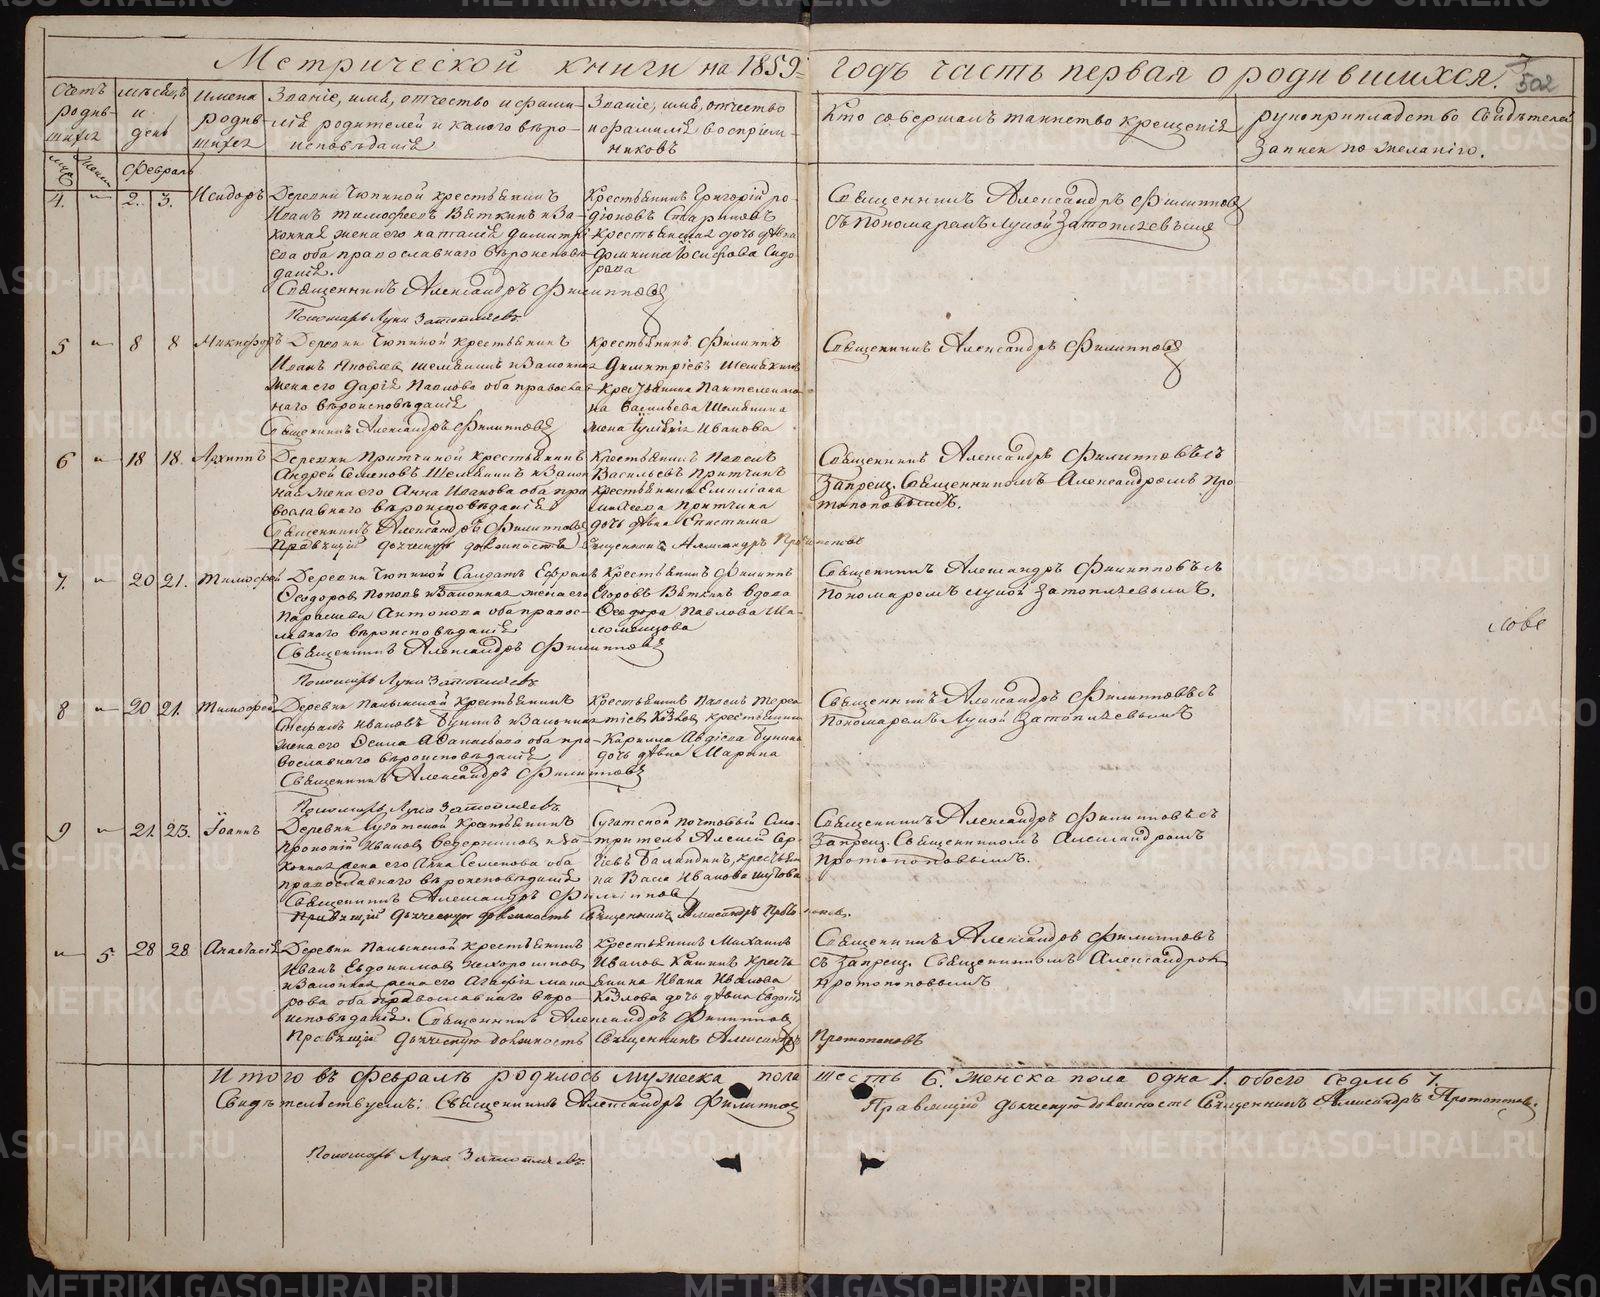 Метрической книги на 1859 годъ часть первая о родившихся.
502
Счетъ родив-шихся
мѣсяцъ и день
Имена родив-шихся
Званіе, имя, отчество и фами-
лія родителей и какого вѣро-
исповѣданія
Званіе, имя, отчество
и фамилія воспріем-
никовъ
Кто совершалъ таинство крещенія
рукоприкладство свидѣтелей
записи по желанію.
Февраль
4. 2. 3. Исидоръ
Деревни Тюпиной крестьянинъ
Иванъ Тимофеевъ Вяткинъ и за-
конная жена его Наталія Димитрі
ева оба православнаго вѣроисповѣ
данія.
Священникъ Александръ Филипповъ
Пономарь Лука Затопляевъ
Крестьянинъ Григорій ро-
діоновъ Стариковъ
крестьянская дочь дѣвка
Домнина Іосифова Сидо-
рова
Священникъ Александръ Филипповъ
съ Пономаремъ Лукой Затопляевымъ
5 8 8 Никифоръ
Деревни Тюпиной крестьянинъ
Иванъ Яковлев Шемякинъ и законная
жена его Дарія Павлова оба правосла-
наго вѣроисповѣданія
Священникъ Александръ Филипповъ
Крестьянинъ Филиппъ
Димитріевъ Шемякинъ
крестьянина Пантелеимо-
на Васильева Шемякина
жена Іуліанія Иванова
Священникъ Александръ Филипповъ
6 18 18. Архиппъ
Деревни Притчиной крестьянинъ
Андрей Семеновъ Шемякинъ и закон
ная жена его Анна Иванова оба пра
вославнаго вѣроисповѣданія
Священникъ Александръ Филипповъ
Правящій дьяческую должность Священникъ Александръ Протопоповъ
Крестьянинъ Павелъ
Васильевъ Притчинъ
крестьянина Емиліана
Притчина
дочь дѣвка Епистима
Священникъ Александръ Филипповъ съ
Запрещ. Священникомъ Александромъ Про
топоповымъ.
7. 20 21. Тимофей
Деревни Тюпиной Солдатъ Ефремъ
Феодоров Попов и законная жена его
Параскева Антонова оба правос-
лавнаго вѣроисповѣданія
Священникъ Александръ Филипповъ
Пономарь Лука Затопляевъ
Крестьянинъ Филиппъ
Егоровъ Вяткинъ вдова
Феодора Павлова Ша-
ломенцова
Священникъ Александръ Филипповъ съ
Пономаремъ Лукой Затопляевымъ.
лове
8 20 21. Тимофей
Деревни Паньшиной Крестьянинъ
Стефанъ Ивановъ Бунинъ и законная
жена его Оеина Аванасьева оба пра
вославнаго вѣроисповѣданія
Священникъ Александръ Филипповъ
Пономарь Лука Затопляевъ
Крестьянинъ Павелъ Терен
тіев Козлов, крестьянина
Кирилла Авдіева Бунина
дочь дѣвка Марина
Священникъ Александръ Филипповъ съ
Пономаремъ Лукой Затопляевымъ
9 21. 23. Іоаннъ
Деревни Сугатской Крестьянинъ
Прокопій Ивановъ Ведерников и за-
конная жена его Анна Семенова оба
православнаго вѣроисповѣданія
Священникъ Александръ Филиппов
Правящій дьяческую должность Священникъ Александръ Протопопов.
Сугатской почтовый Смо-
тритель Алексій Сер-
гіевъ Баландинъ, крестьяни
на Васи Иванова Шутова
Священникъ Александръ Филипповъ съ
Запрещ. Священникомъ Александромъ
Протопоповымъ.
5 28 28 Анастасія
Деревни Паньшиной крестьянинъ
Иванъ Евдокимов Нехорошков
и законная жена его Агафія Мака
рова оба православнаго вѣро-
исповѣданія. Священникъ Александръ Филиппов
Правящій дьяческую должность Священникъ Александръ Протопоповъ
Крестьянинъ Михаилъ
Иванов Кашинъ Кресть
янина Ивана Иванова
Козлова дочь дѣвка Евдокія
Священникъ Александръ Филипповъ
съ Запрещ. Священникомъ Александром
Протопоповымъ
Итого въ Февралѣ родилось мужеска пола шесть 6. женска пола одна 1. обоего седмь 7.
Свидѣтельствуемъ: Священникъ Александръ Филиппов
Правящій дьяческую должность Священникъ Александръ Протопопов.
Пономарь Лука Затопляевъ.
METRIKI.GASO-URAL.RU